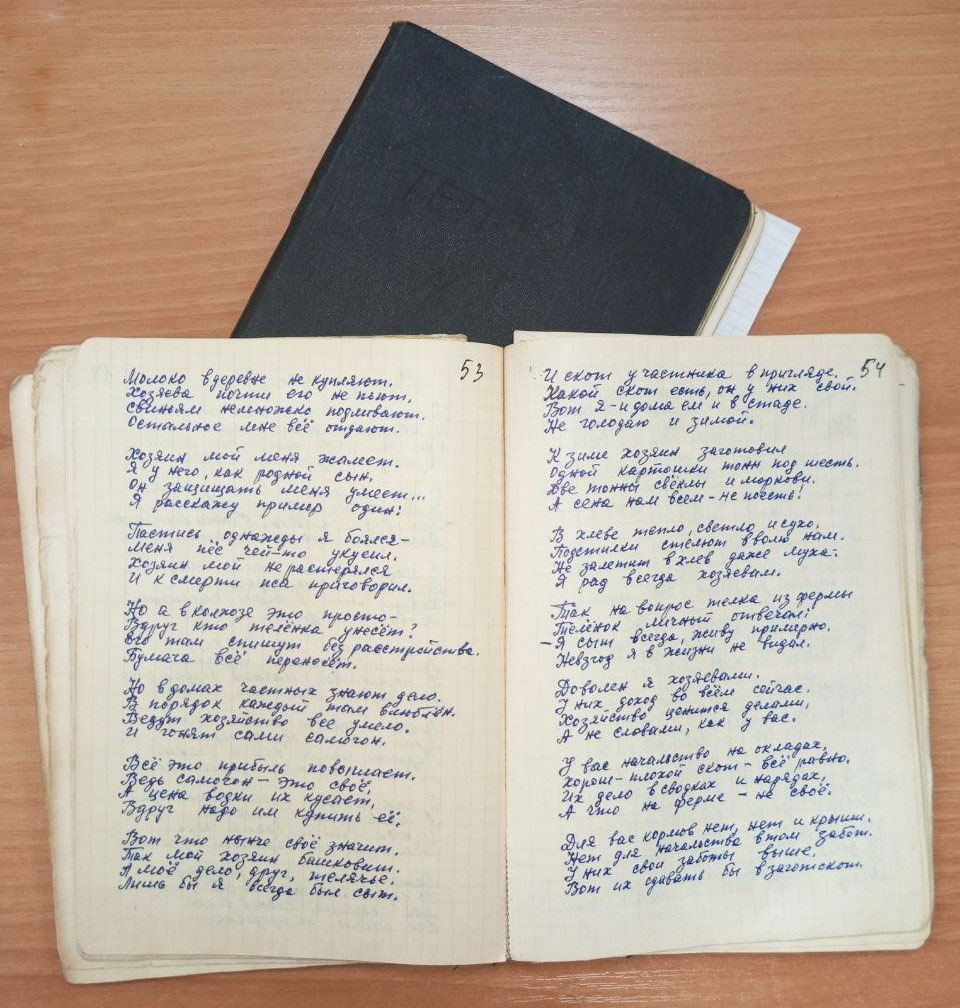 ТЕТ
53
Молоко в деревне не купляют.
Хозяева почти его не пьют.
Свиньям немножко подливают.
Остальное мне всё отдают.
Хозяин мой меня жалеет.
Я у него, как родной сын.
Он защищать меня умеет...
Я расскажу пример один:
Пастись однажды я боялся-
Меня пёс чей-то укусил.
Хозяин мой не растерялся
И к смерти пса приговорил.
Но а в колхозе это просто-
Вдруг кто телёнка унесёт?
Его там спишут без расстройства.
Бумага всё перенесёт.
Но в домах частных знают дело.
В порядок каждый там влюблён.
Ведут хозяйство все умело.
И гонят сами самогон.
Всё это прибыль повышает.
Ведь самогон - это своё,
А цена водки их кусает,
Вдруг надо им купить её.
Вот что нынче своё значит.
Так мой хозяин башковит.
А моё дело, друг, телячье.
Лишь бы я всегда был сыт.
54
И скот у частника в пригляде.
Какой скот есть, он у них свой.
Вот я - и дома ем и в стаде.
Не голодаю и зимой.
К зиме хозяин заготовил
Одной картошки тонн под шесть.
Две тонны свёклы и моркови.
А сена нам всем - не поесть!
В хлеве тепло, светло и сухо,
Подстилки стелют вволю нам.
Не залетит в хлев даже муха.
Я рад всегда хозяевам.
Так на вопрос телка из фермы
Телёнок личный отвечал:
- Я сыт всегда, живу примерно.
Невзгод я в жизни не видал.
Доволен я хозяевами.
У них доход во всём сейчас.
Хозяйство ценится делами,
А не словами, как у вас.
У вас начальство на окладах,
Хорош-плохой скот - всё равно.
Их дело в сводках и нарядах,
А что на ферме - не своё.
Для вас кормов нет, нет и крыши.
Нет для начальства в том забот.
У них свои заботы выше,
Вот их сдавать бы в заготскот.